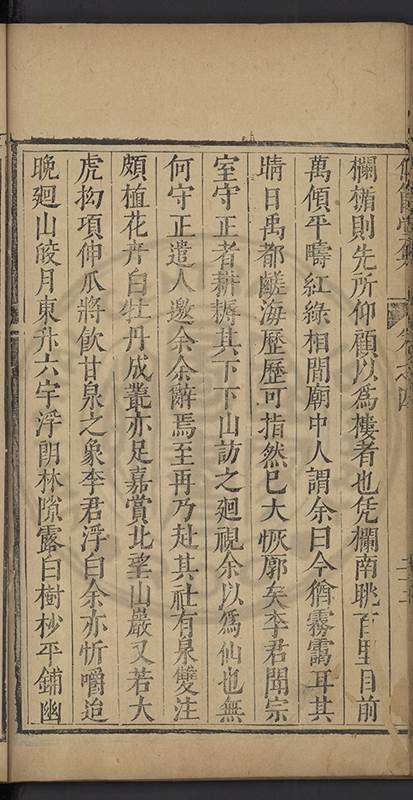 欄楯則先所仰顧以爲樓者也凭欄南眺百里目前
萬傾平疇紅綠相間廟中人謂余曰今猶霧靄耳其
晴日禹都鹺海歷歷可指然已大恢廓矣李君聞宗
室守正者耕耨其下下山訪之廻視余以爲仙也無
何守正遣人邀余余辭焉至再乃赴其社有泉雙注
頗植花卉白牡丹成叢亦足嘉賞北望山嚴又若大
虎拗項伸爪將飲甘泉之象李君浮白余亦忻嚼迨
晚廻山皎月東升六宇浮朗林隙露白樹杪平鋪幽